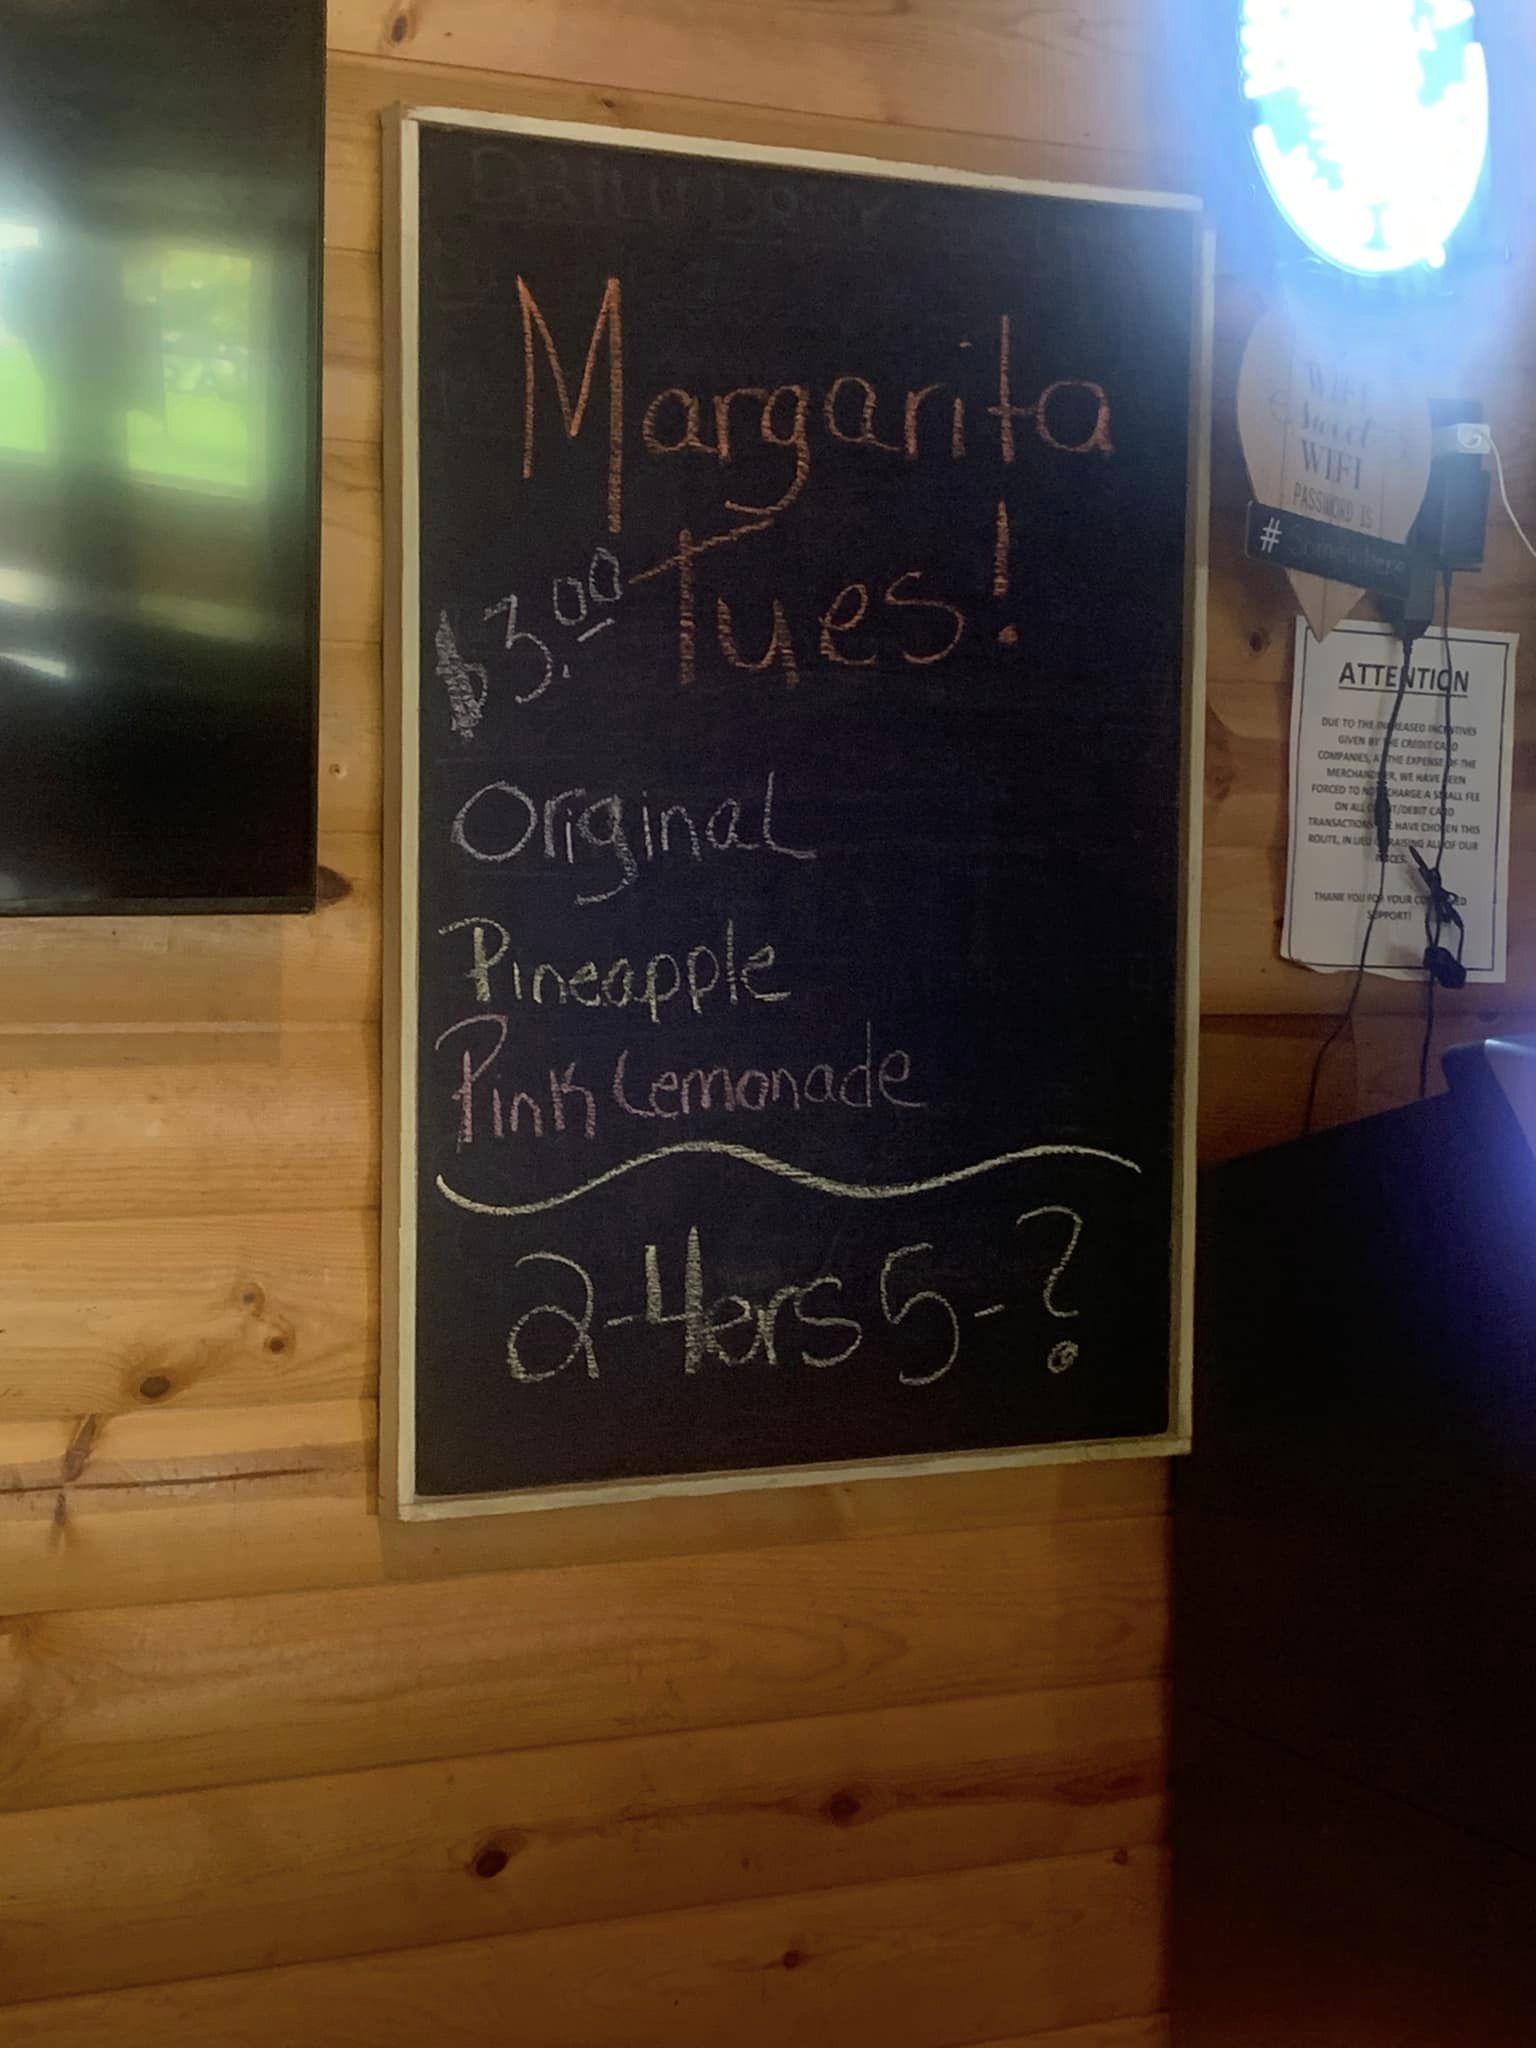 Margarita
$3.00 Tues!
Original
Pineapple
Pink Lemonade
2-4ers 5-?
WIFI
Sweet
WIFI
PASSWORD IS
#
ATTENTION
DUE TO THE INCREASED INCENTIVES
GIVEN BY THE CREDIT CARD
COMPANIES, AT THE EXPENSE OF THE
MERCHANDISER, WE HAVE BEEN
FORCED TO NOW CHARGE A SMALL FEE
ON ALL CREDIT/DEBIT CARD
TRANSACTIONS. WE HAVE CHOSEN THIS
ROUTE, IN LIEU OF RAISING ALL OF OUR
PRICES.
THANK YOU FOR YOUR CONTINUED
SUPPORT!